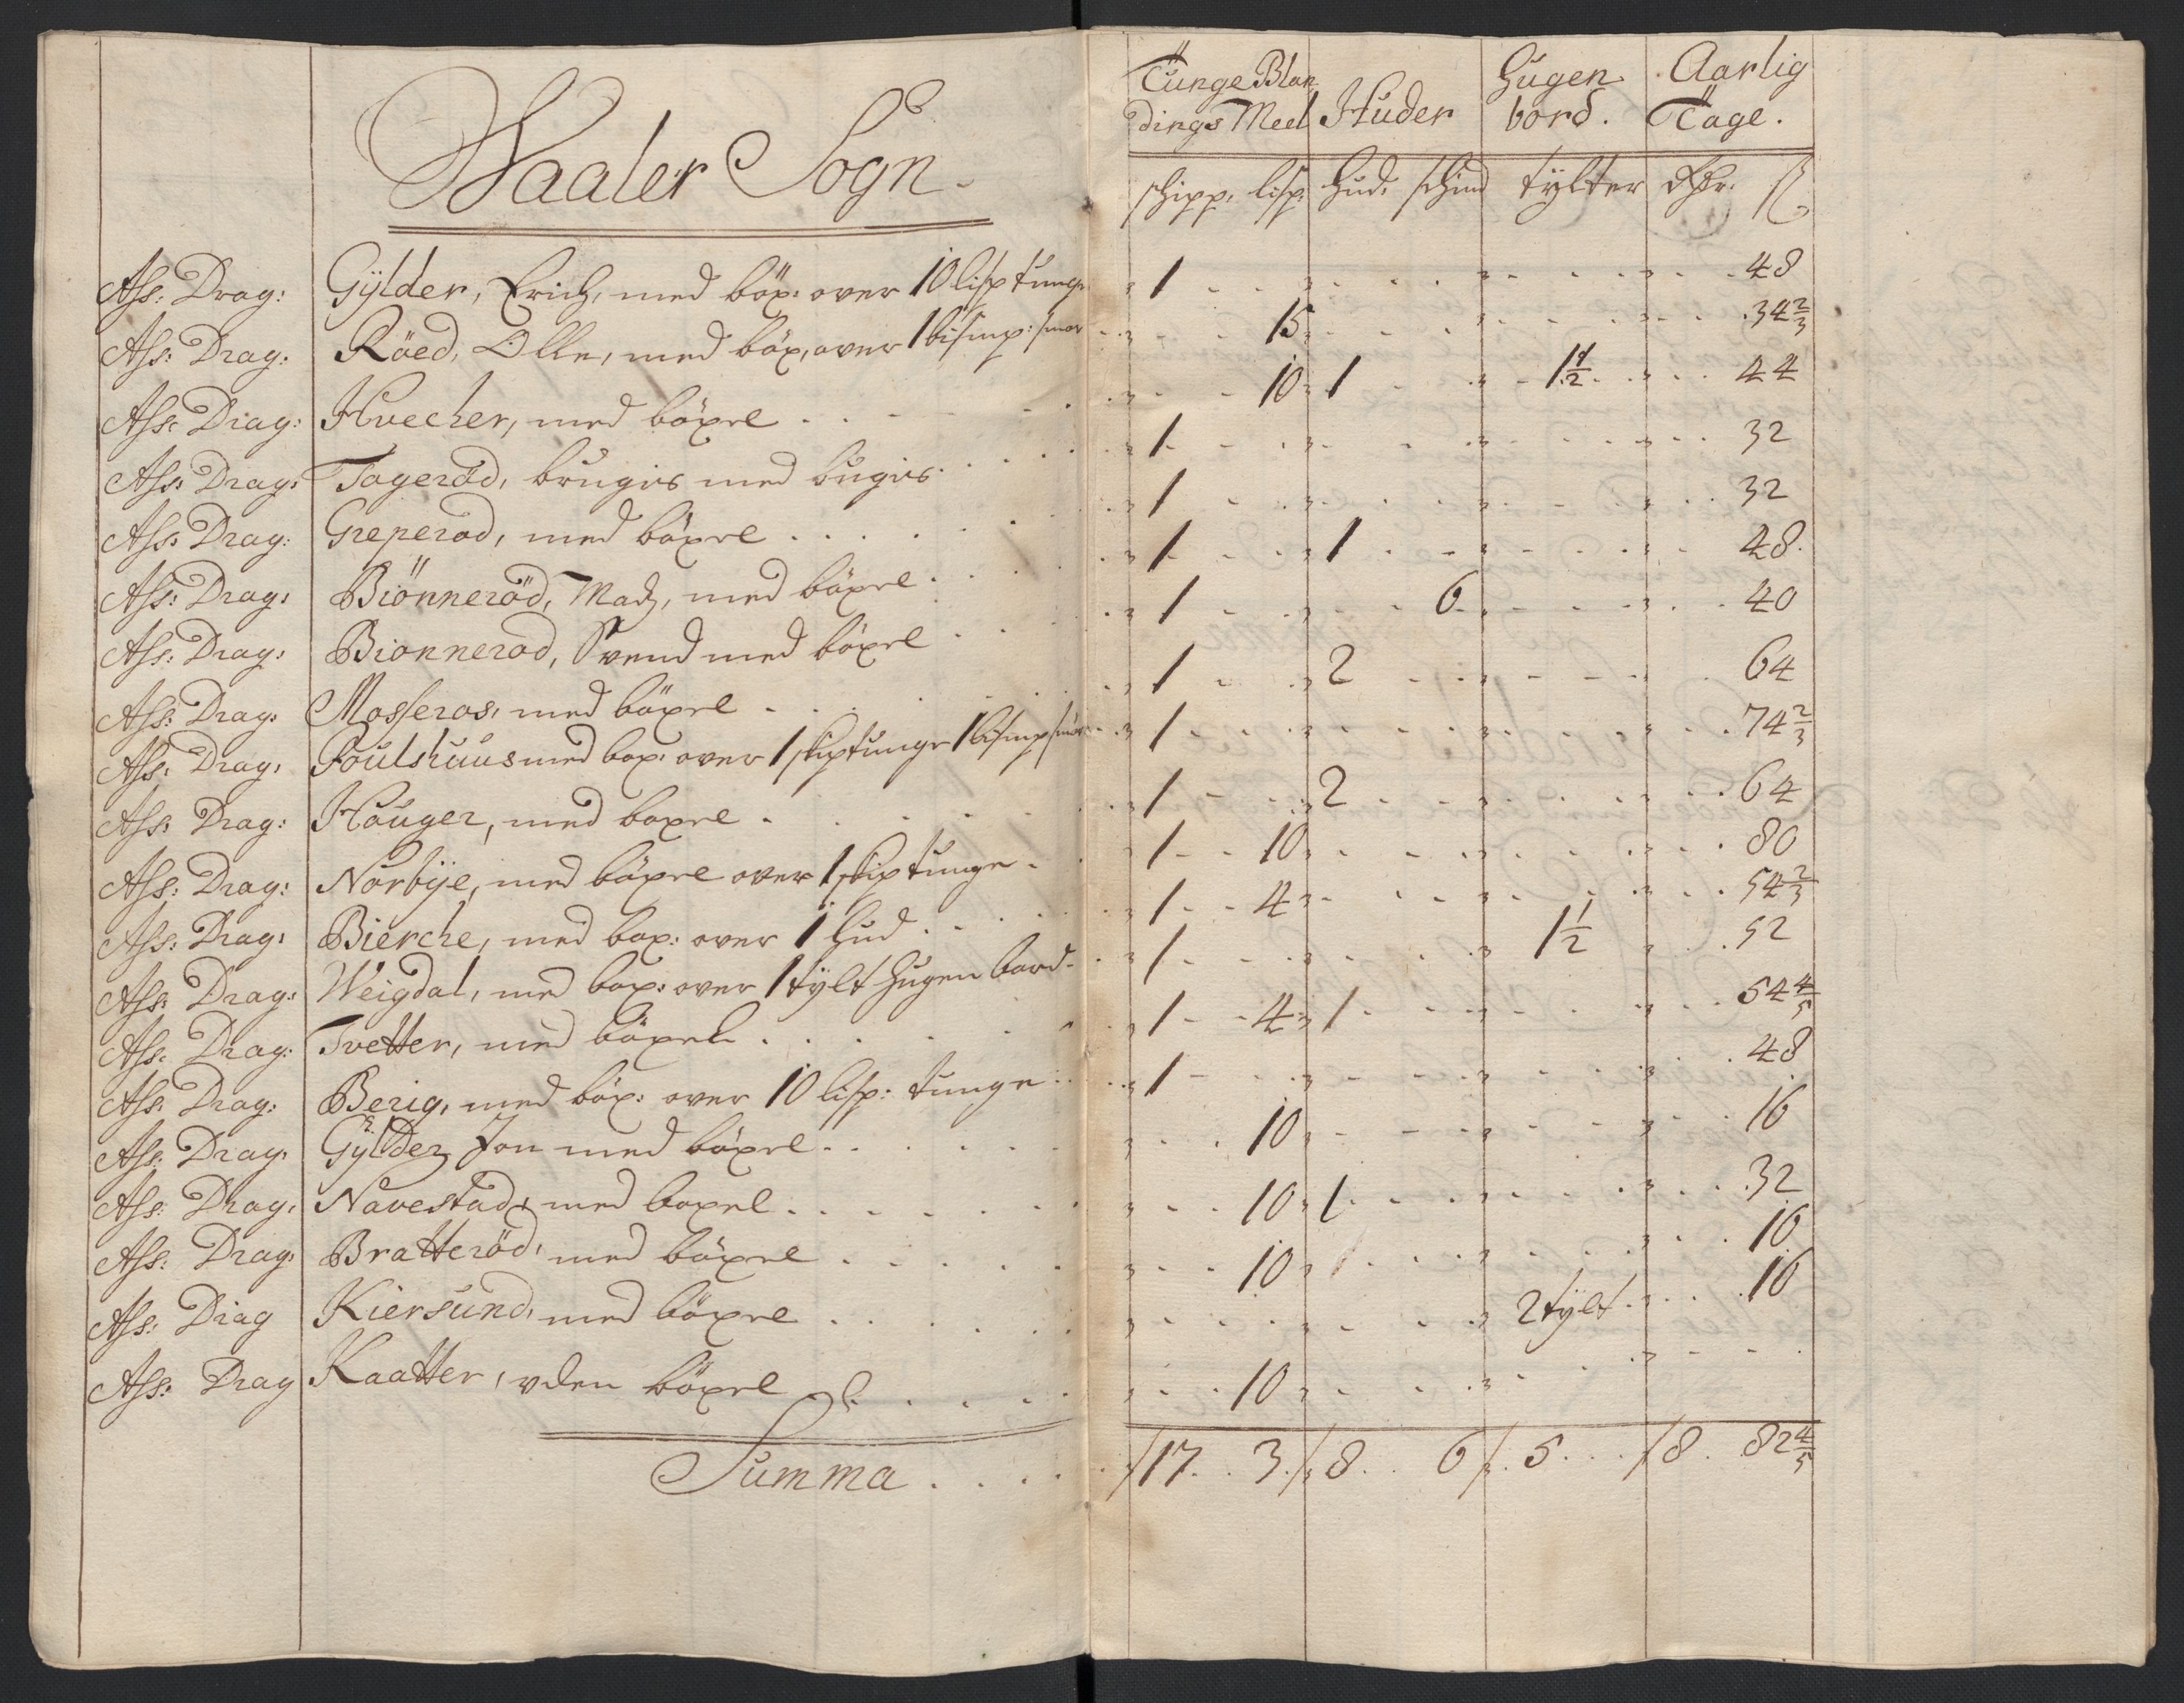 Waaler Sogn.
Tunge Blan dings Meel | Huder | Hugen bord. | Aarlig Tage.
schipp: lisp: | hud: schind | tylter | dhr: ß
Ass: Drag: Gylder, Erich, med böx: over 10 lisp tunge 1 48
Ass: Drag: Röed, Olle, med böx, over 1 bismp: smör 15 34 2/3
Ass: Drag: Hvecher, med böxel 10 1 1 1/2 44
Ass: Drag: Tageröd, brugis med bugis 1 32
Ass: Drag: Greperod, med böxel 1 32
Ass: Drag: Biönneröd, Madz, med böxel 1 1 48
Ass: Drag: Bionnerod, Svend med böxel 1 6 40
Ass: Drag: Mosseros, med böxel 1 2 64
Ass: Drag: Poulshuus med box: over 1 skip tunge 1 bismp smör 1 74 2/3
Ass: Drag: Hauger, med boxel 1 2 64
Ass: Drag: Norbye, med böxel over 1 skip tunge 1 10 80
Ass: Drag: Bierche, med box: over 1 hud 1 4 54 2/3
Ass: Drag: Weigdal, med box: over 1 tylt hugen bord 1 1 1/2 52
Ass: Drag: Tvetter, med böxel 1 4 1 54 4/5
Ass: Drag: Berig, med böx: over 10 lisp: tunge 1 48
Ass: Drag: Gylder Jon med böxel 10 16
Ass: Drag: Navestad, med boxel 10 1 32
Ass: Drag: Bratteröd, med böxel 10 16
Ass: Drag Kiersund, med böxel 2 tylt 16
Ass: Drag Kaatter, uden böxel 10
Summa 17 3 8 6 5 8 82 4/5